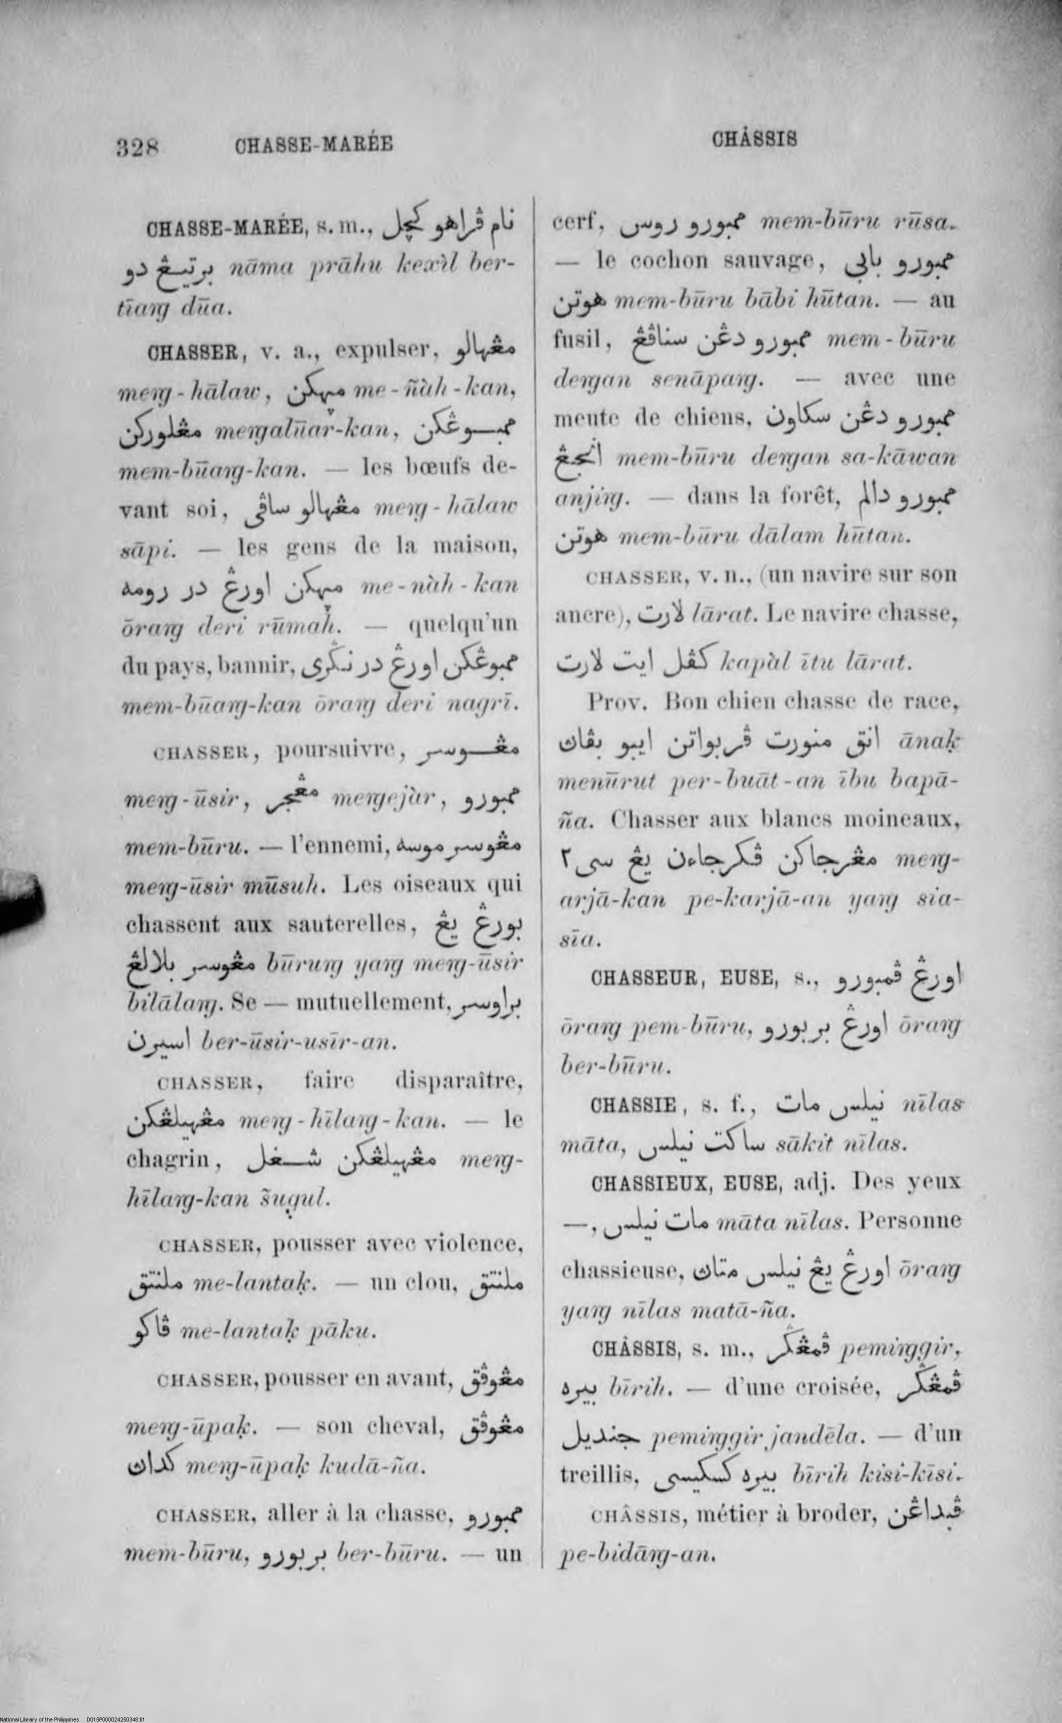 328 CHASSE-MARÉE
CHÂSSIS
CHASSE-MARÉE, s. m., نام ڤراهو كچل
برتيـڠ دو nāma prāhu kexil ber-
tīaṅg dūa.
CHASSER, v. a., expulser, مڠهالو
meṅg-hālaw, ميهكن me-ñàh-kan,
مڠلوركن meṅgalūar-kan, ممبـوڠكن
mem-būaṅg-kan. — les bœufs de-
vant soi, مڠهالو ساڤي meṅg-hālaw
sāpi. — les gens de la maison,
ميهكن اورڠ در رومه me-ñàh-kan
ōraṅg deri rūmah. — quelqu'un
du pays, bannir, ممبوڠكن اورڠ در نڬري
mem-būaṅg-kan ōraṅg deri nagrī.
CHASSER, poursuivre, مڠـوسر
meṅg-ūsir, مڠجر meṅgejàr, ممبورو
mem-būru. — l'ennemi, مڠوسر موسه
meṅg-ūsir mūsuh. Les oiseaux qui
chassent aux sauterelles, بورڠ يڠ
مڠوسر بلالڠ būruṅg yaṅg meṅg-ūsir
bilālaṅg. Se — mutuellement, براوسر
اسيرن ber-ūsir-usīr-an.
CHASSER, faire disparaître,
مڠهيلڠكن meṅg-hīlaṅg-kan. — le
chagrin, مڠهيلڠكن شـغل meṅg-
hīlaṅg-kan s̃uġul.
CHASSER, pousser avec violence,
ملنتق me-lantaḳ. — un clou, ملنتق
ڤاكو me-lantaḳ pāku.
CHASSER, pousser en avant, مڠوڤق
meṅg-ūpaḳ. — son cheval, مڠوڤق
كداڽ meṅg-ūpaḳ kudā-ña.
CHASSER, aller à la chasse, ممبورو
mem-būru, بربورو ber-būru. — un
cerf, ممبورو روس mem-būru rūsa.
— le cochon sauvage, ممبورو بابي
هوتن mem-būru bābi hūtan. — au
fusil, ممبورو دڠن سناڤڠ mem-būru
deṅgan senāpaṅg. — avec une
meute de chiens, ممبورو دڠن سكاون
انجڠ mem-būru deṅgan sa-kāwan
anjiṅg. — dans la forêt, ممبورو دالم
هوتن mem-būru dālam hūtan.
CHASSER, v. n., (un navire sur son
ancre), لارت lārat. Le navire chasse,
كڤل ايت لارت kapàl ītu lārat.
Prov. Bon chien chasse de race,
انق منورت ڤربواتن ايبو بڤاڽ ānaḳ
menūrut per-buāt-an ību bapā-
ña. Chasser aux blancs moineaux,
مڠرجاكن ڤكرجاءن يڠ سي٢ meṅg-
arjā-kan pe-karjā-an yaṅg sia-
sīa.
CHASSEUR, EUSE, s., اورڠ ڤمبورو
ōraṅg pem-būru, اورڠ بربورو ōraṅg
ber-būru.
CHASSIE, s. f., نيلس مات nīlas
māta, ساكت نيلس sākit nīlas.
CHASSIEUX, EUSE, adj. Des yeux
—, مات نيلس māta nīlas. Personne
chassieuse, اورڠ يڠ نيلس متاڽ ōraṅg
yaṅg nīlas matā-ña.
CHÂSSIS, s. m., ڤمڠڬر pemiṅggir,
بيره bīrih. — d'une croisée, ڤمڠڬر
جنديل pemiṅggir jandēla. — d'un
treillis, بيره كسكيسي bīrih kisi-kīsi.
CHÂSSIS, métier à broder, ڤبداڠن
pe-bidāṅg-an.
National Library of the Philippines